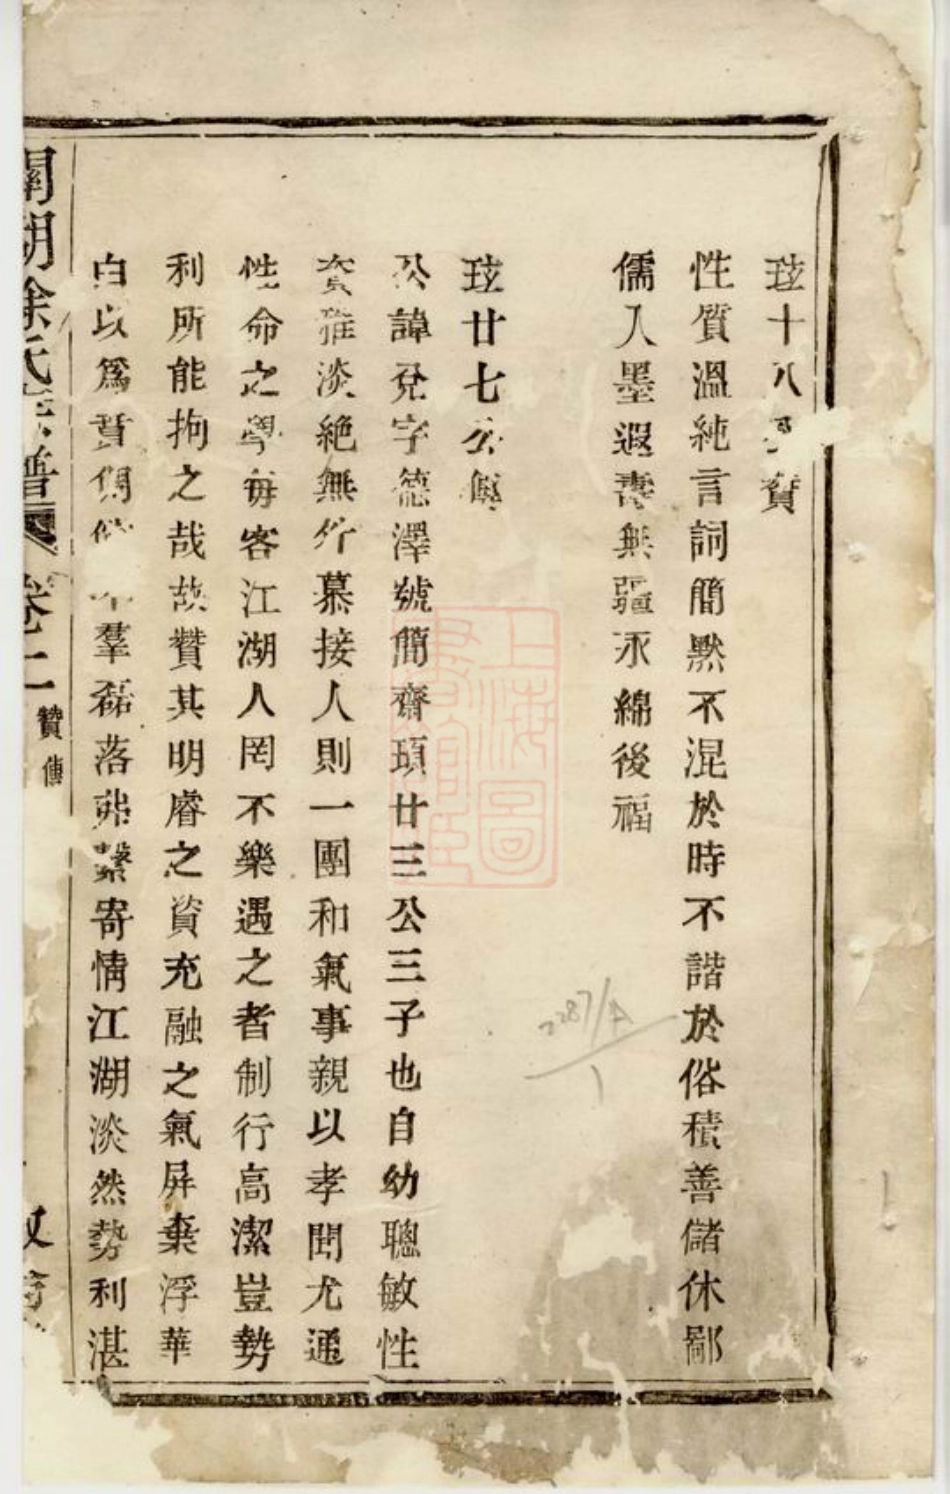 玹十八贊
性質溫純言詞簡默不混於時不諧於俗積善儲休鄙
儒入墨遐壽無疆永綿後福
玹廿七公傳
公諱兌字德澤號簡齋頊廿三公三子也自幼聰敏性
資雅淡絕無外慕接人則一團和氣事親以孝聞尤通
性命之學每客江湖人罔不樂遇之者制行高潔豈勢
利所能拘之哉故贊其明睿之資充融之氣屏棄浮華
白以爲賁倜儻羣磊落弗繫寄情江湖淡然勢利湛
湖徐氏宗譜 卷二 贊傳
上海圖書館藏
2287/A
1